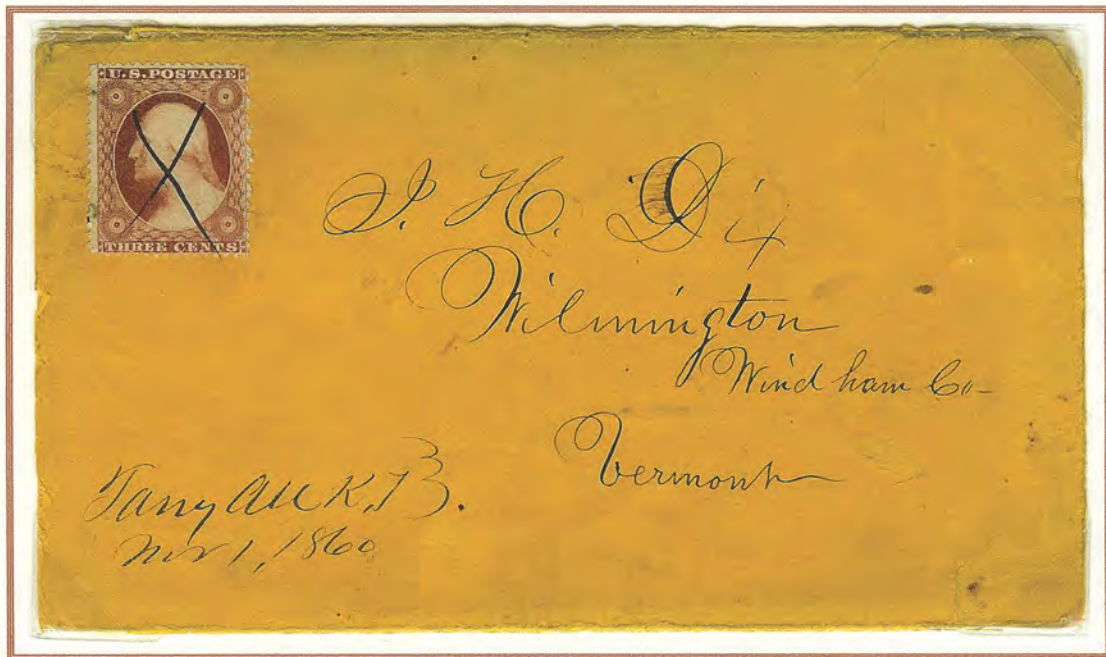 U.S. POSTAGE
THREE CENTS
I. H. Dix
Wilmington
Windham Co-
Vermont
Nov 1, 1860